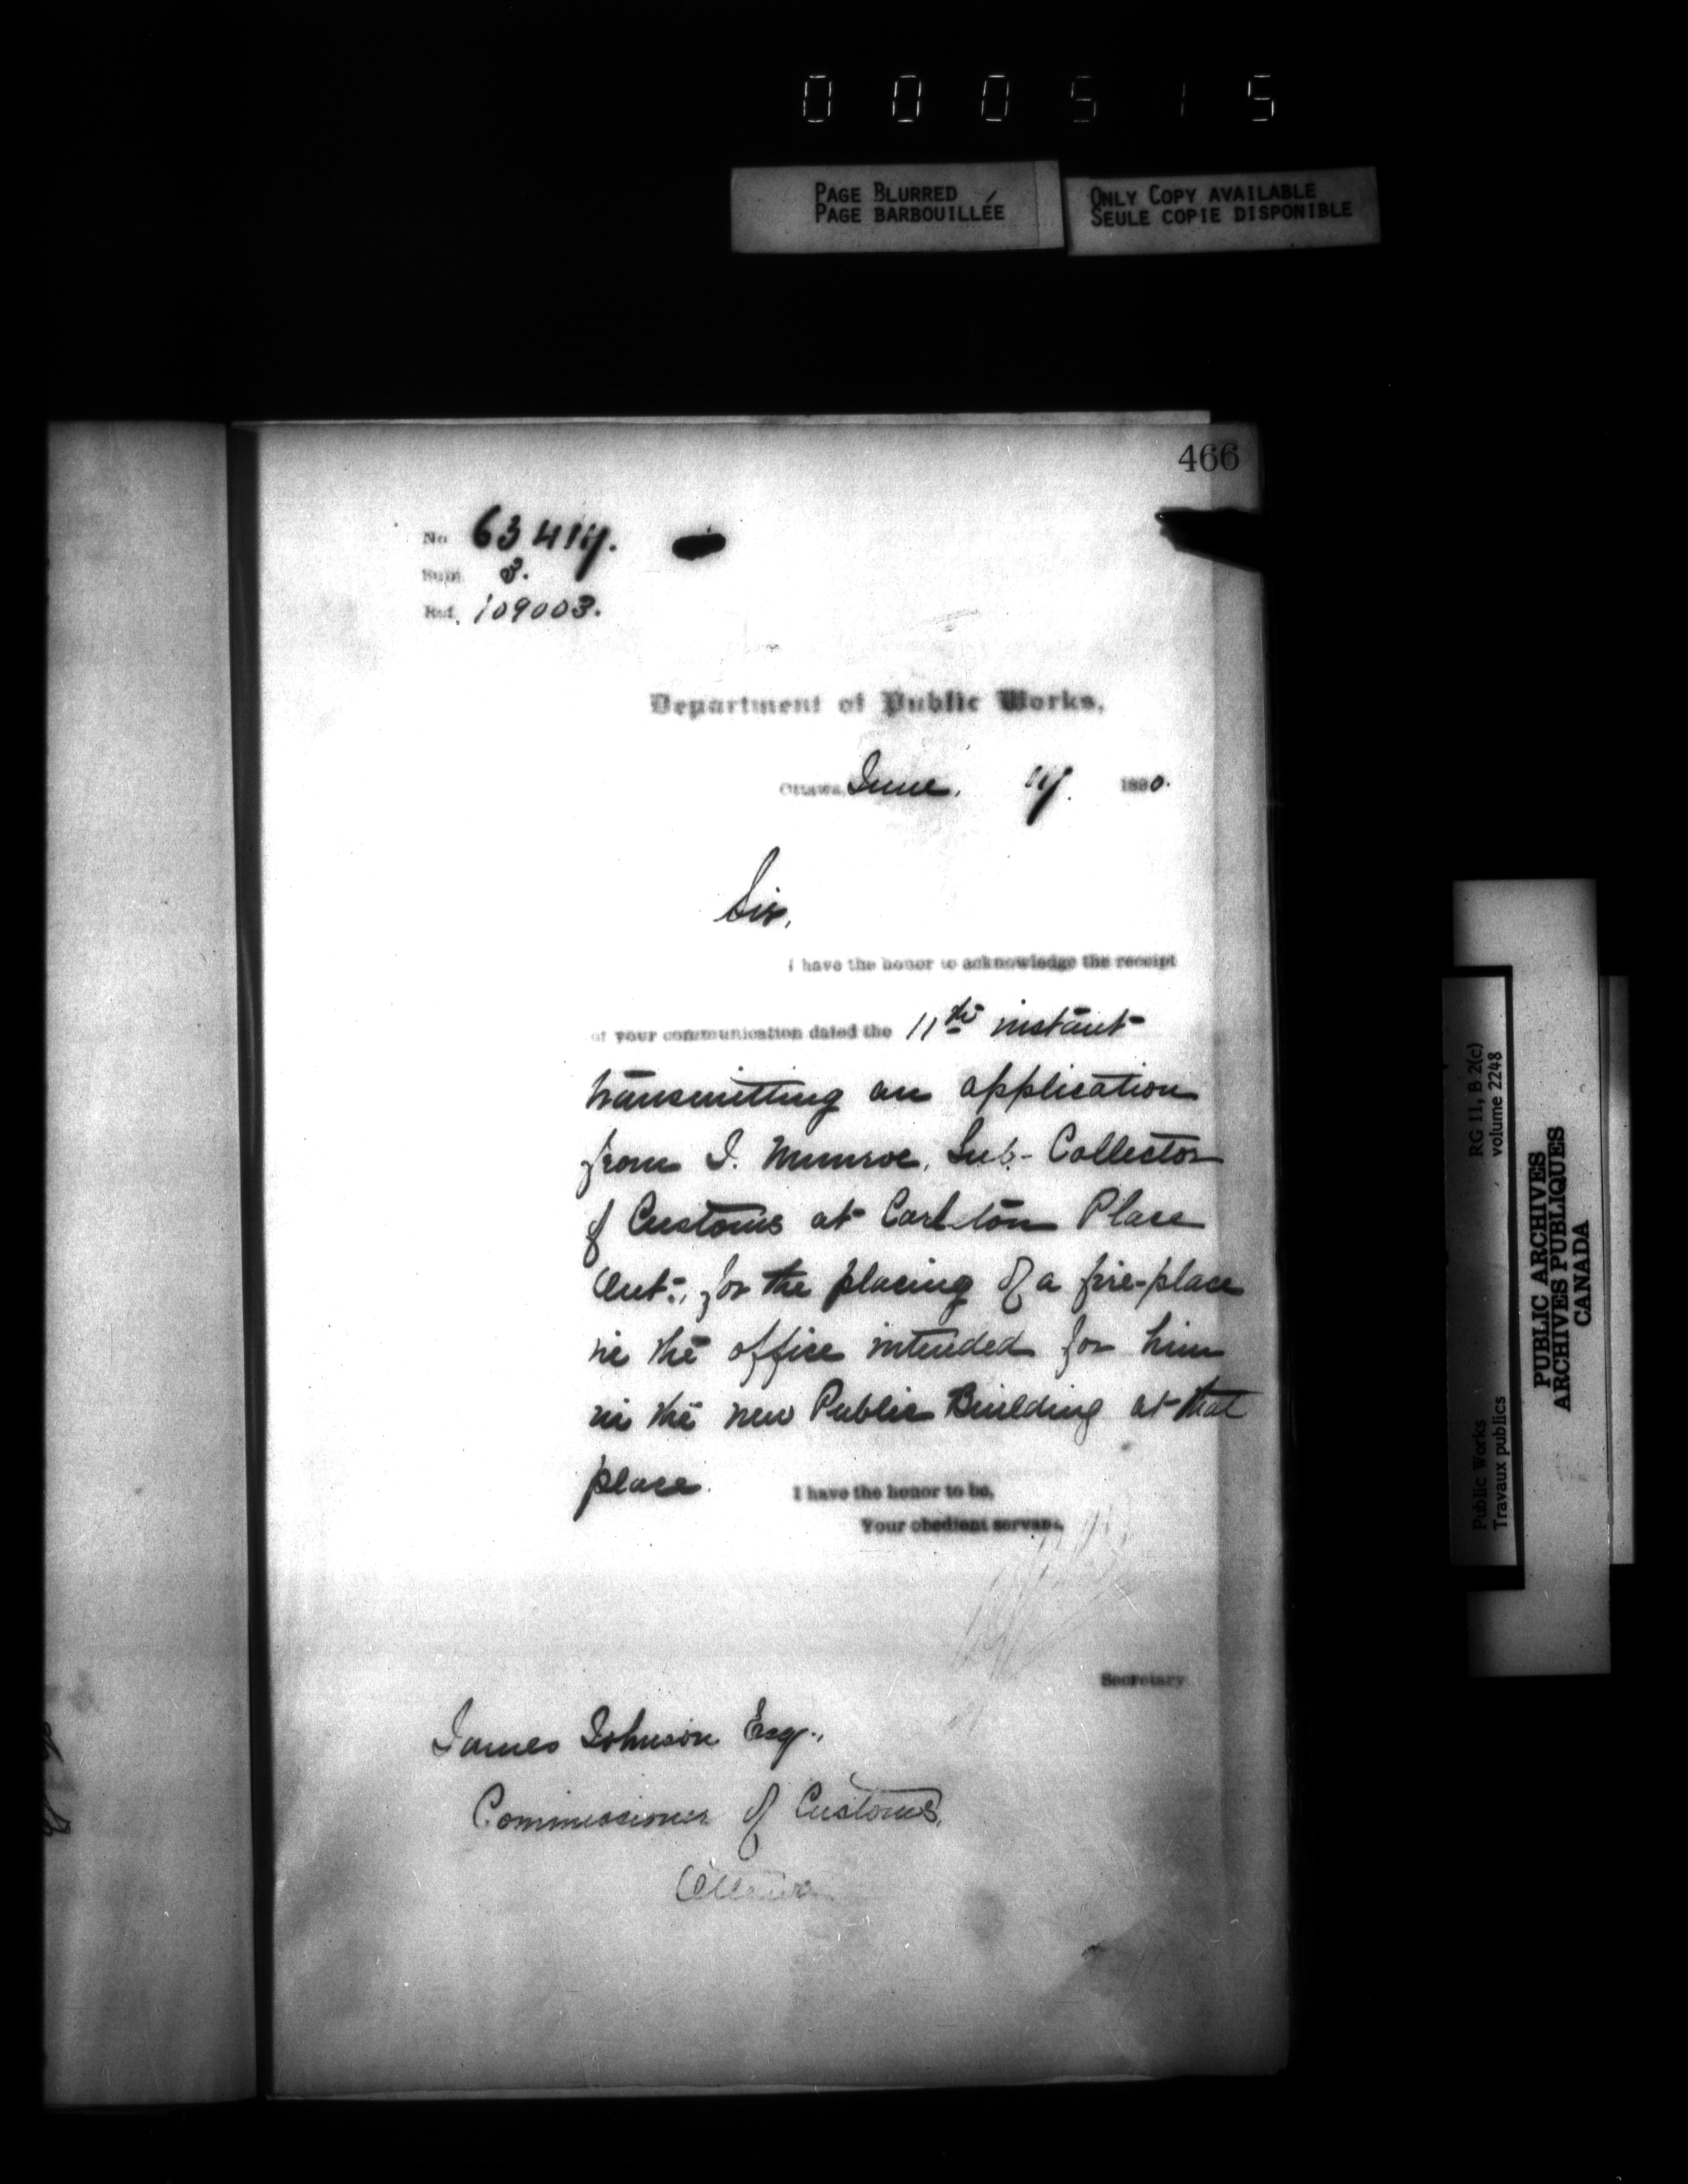 000515
PAGE BLURRED
PAGE BARBOUILLÉE
ONLY COPY AVAILABLE
SEULE COPIE DISPONIBLE
466
No 63417.
Subj. 3.
Ref. 109003.
Department of Public Works,
Ottawa, June, 17. 1890.
Sir,
I have the honor to acknowledge the receipt
of your communication dated the 11th instant
transmitting an application
from J. Munroe, Sub-Collector
of Customs at Carleton Place
Ont:, for the placing of a fire-place
in the office intended for him
in the new Public Building at that
place.
I have the honor to be,
Your obedient servant,
Secretary
James Johnson Esq.,
Commissioner of Customs,
Ottawa
RG 11, B 2(c)
volume 2248
Public Works
Travaux publics
PUBLIC ARCHIVES
ARCHIVES PUBLIQUES
CANADA